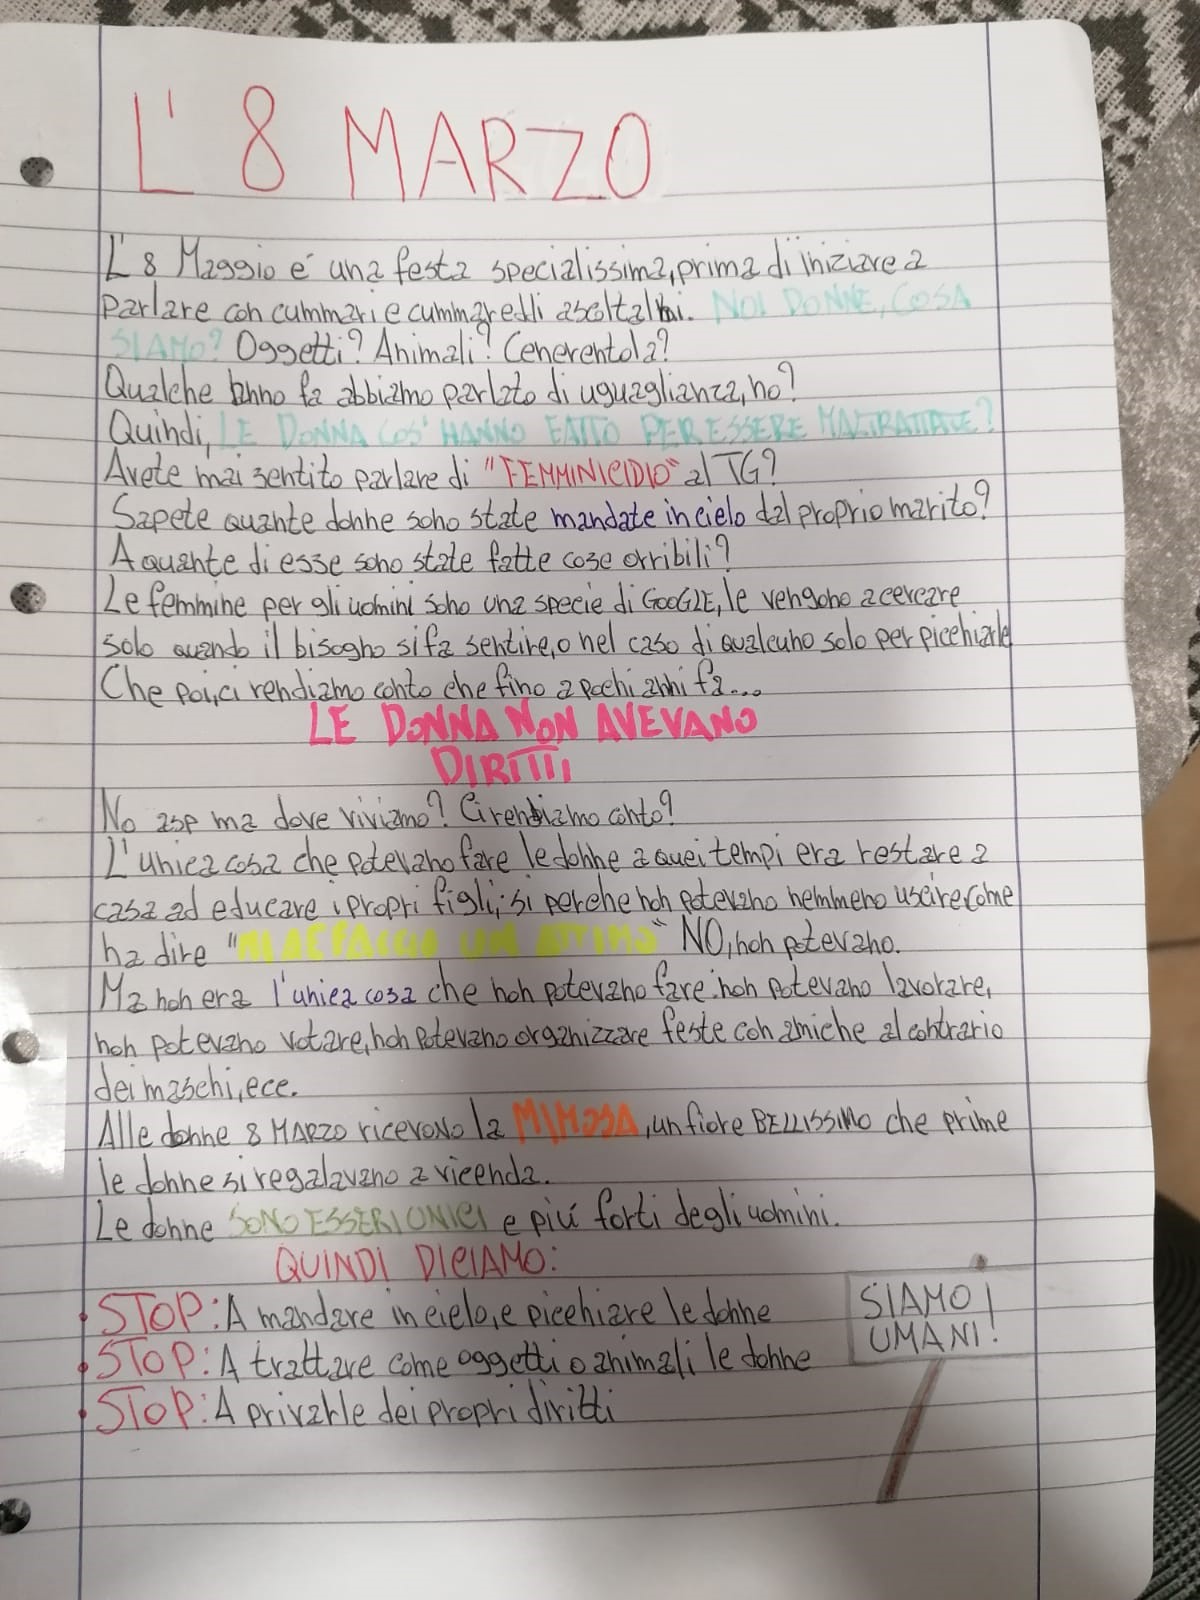 L' 8 MARZO
L' 8 Maggio é una festa specialissima, prima di iniziare a
parlare con cummari e cummaredli ascoltalmi. NOI DONNE, COSA
SIAMO? Oggetti? Animali? Cenerentola?
Qualche anno fa abbiamo parlato di uguaglianza, no?
Quindi, LE DONNA COS' HANNO FATTO PER ESSERE MALTRATTATE?
Avete mai sentito parlare di "FEMMINICIDIO" al TG?
Sapete quante donne sono state mandate in cielo dal proprio marito?
A quante di esse sono state fatte cose orribili?
Le femmine per gli uomini sono una specie di GOOGLE, le vengono a cercare
solo quando il bisogno si fa sentire, o nel caso di qualcuno solo per picchiarle
Che poi, ci rendiamo conto che fino a pochi anni fa...
LE DONNA NON AVEVANO
DIRITTI,
No asp ma dove viviamo? Ci rendiamo conto?
L'unica cosa che potevano fare le donne a quei tempi era restare a
casa ad educare i propri figli; si perche non potevano nemmeno uscire come
ha dire " UN ATTIMO" NO, non potevano.
Ma non era l'unica cosa che non potevano fare: non potevano lavorare,
non potevano votare, non potevano organizzare feste con amiche al contrario
dei maschi, ecc.
Alle donne 8 MARZO ricevono la MIMOSA, un fiore BELLISSIMO che prime
le donne si regalavano a vicenda.
Le donne SONO ESSERI UNICI e piú forti degli uomini.
QUINDI DICIAMO:
• STOP: A mandare in cielo, e picchiare le donne
• STOP: A trattare come oggetti o animali le donne
• STOP: A privarle dei propri diritti
SIAMO
UMANI!